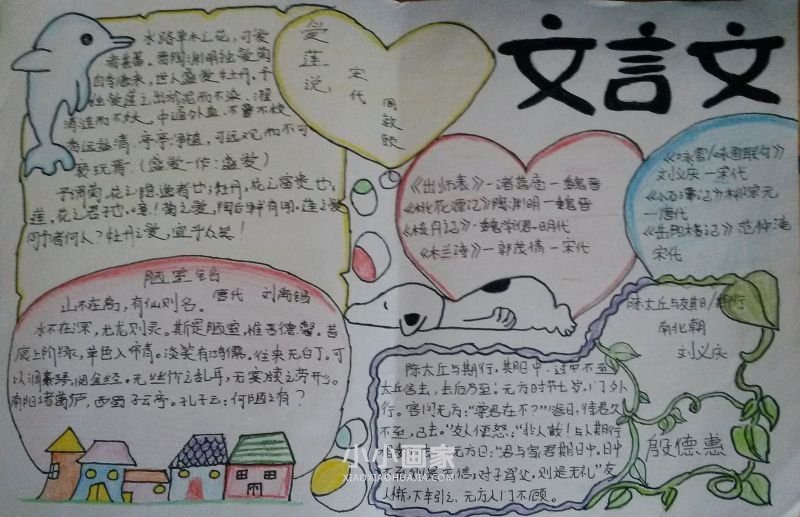 文言文
爱莲说
宋代
周敦颐
水陆草木之花，可爱
者甚蕃。晋陶渊明独爱菊
自李唐来，世人盛爱牡丹。予
独爱莲之出淤泥而不染，濯
清涟而不妖，中通外直，不蔓不枝
香远益清，亭亭净植，可远观而不可
亵玩焉。(盛爱一作：盛爱)
予谓菊，花之隐逸者也；牡丹，花之富贵也；
莲，花之君子也。噫！菊之爱，陶后鲜有闻，莲之爱
同予者何人？牡丹之爱，宜乎众矣！
《出师表》—诸葛亮—魏晋
《桃花源记》陶渊明—魏晋
《核舟记》—魏学伊-明代
《木兰诗》—郭茂倩—宋代
《咏雪/咏雪联句》
刘义庆—宋代
《小石潭记》柳宗元
—唐代
《岳阳楼记》范仲淹
宋代
陋室铭
唐代 刘禹锡
山不在高，有仙则名。
水不在深，有龙则灵。斯是陋室，惟吾德馨。苔
痕上阶绿，草色入帘青。谈笑有鸿儒，往来无白丁。可
以调素琴，阅金经。无丝竹之乱耳，无案牍之劳形。
南阳诸葛庐，西蜀子云亭。孔子云：何陋之有？
陈太丘与友期/期行
南北朝
刘义庆
陈太丘与友期行，期日中，过中不至
太丘舍去，去后乃至。元方时年七岁，门外
行。客问元方："尊君在不？"答曰："待君久
不至，已去。"友人便怒："非人哉！与人期行
元方曰："君与家君期日中。日中
不至，则是无信；对子骂父，则是无礼"友
人惭，下车引之，元方入门不顾。
殷德惠
小小画家
XIAOXIAOHUAJIA.COM